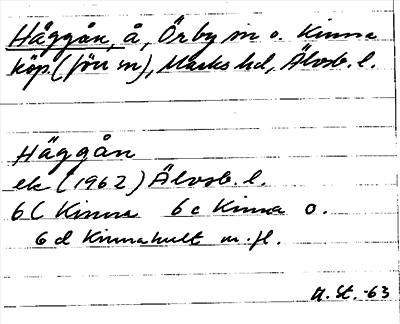 Häggån, å, Örby sn o. Kinna
köp. (förr sn), Marks hd, Älvsb. l.
Häggån
ek (1962) Älvsb. l.
6 c Kinna o.
6 d Kinnahult m. fl.
A. St. -63